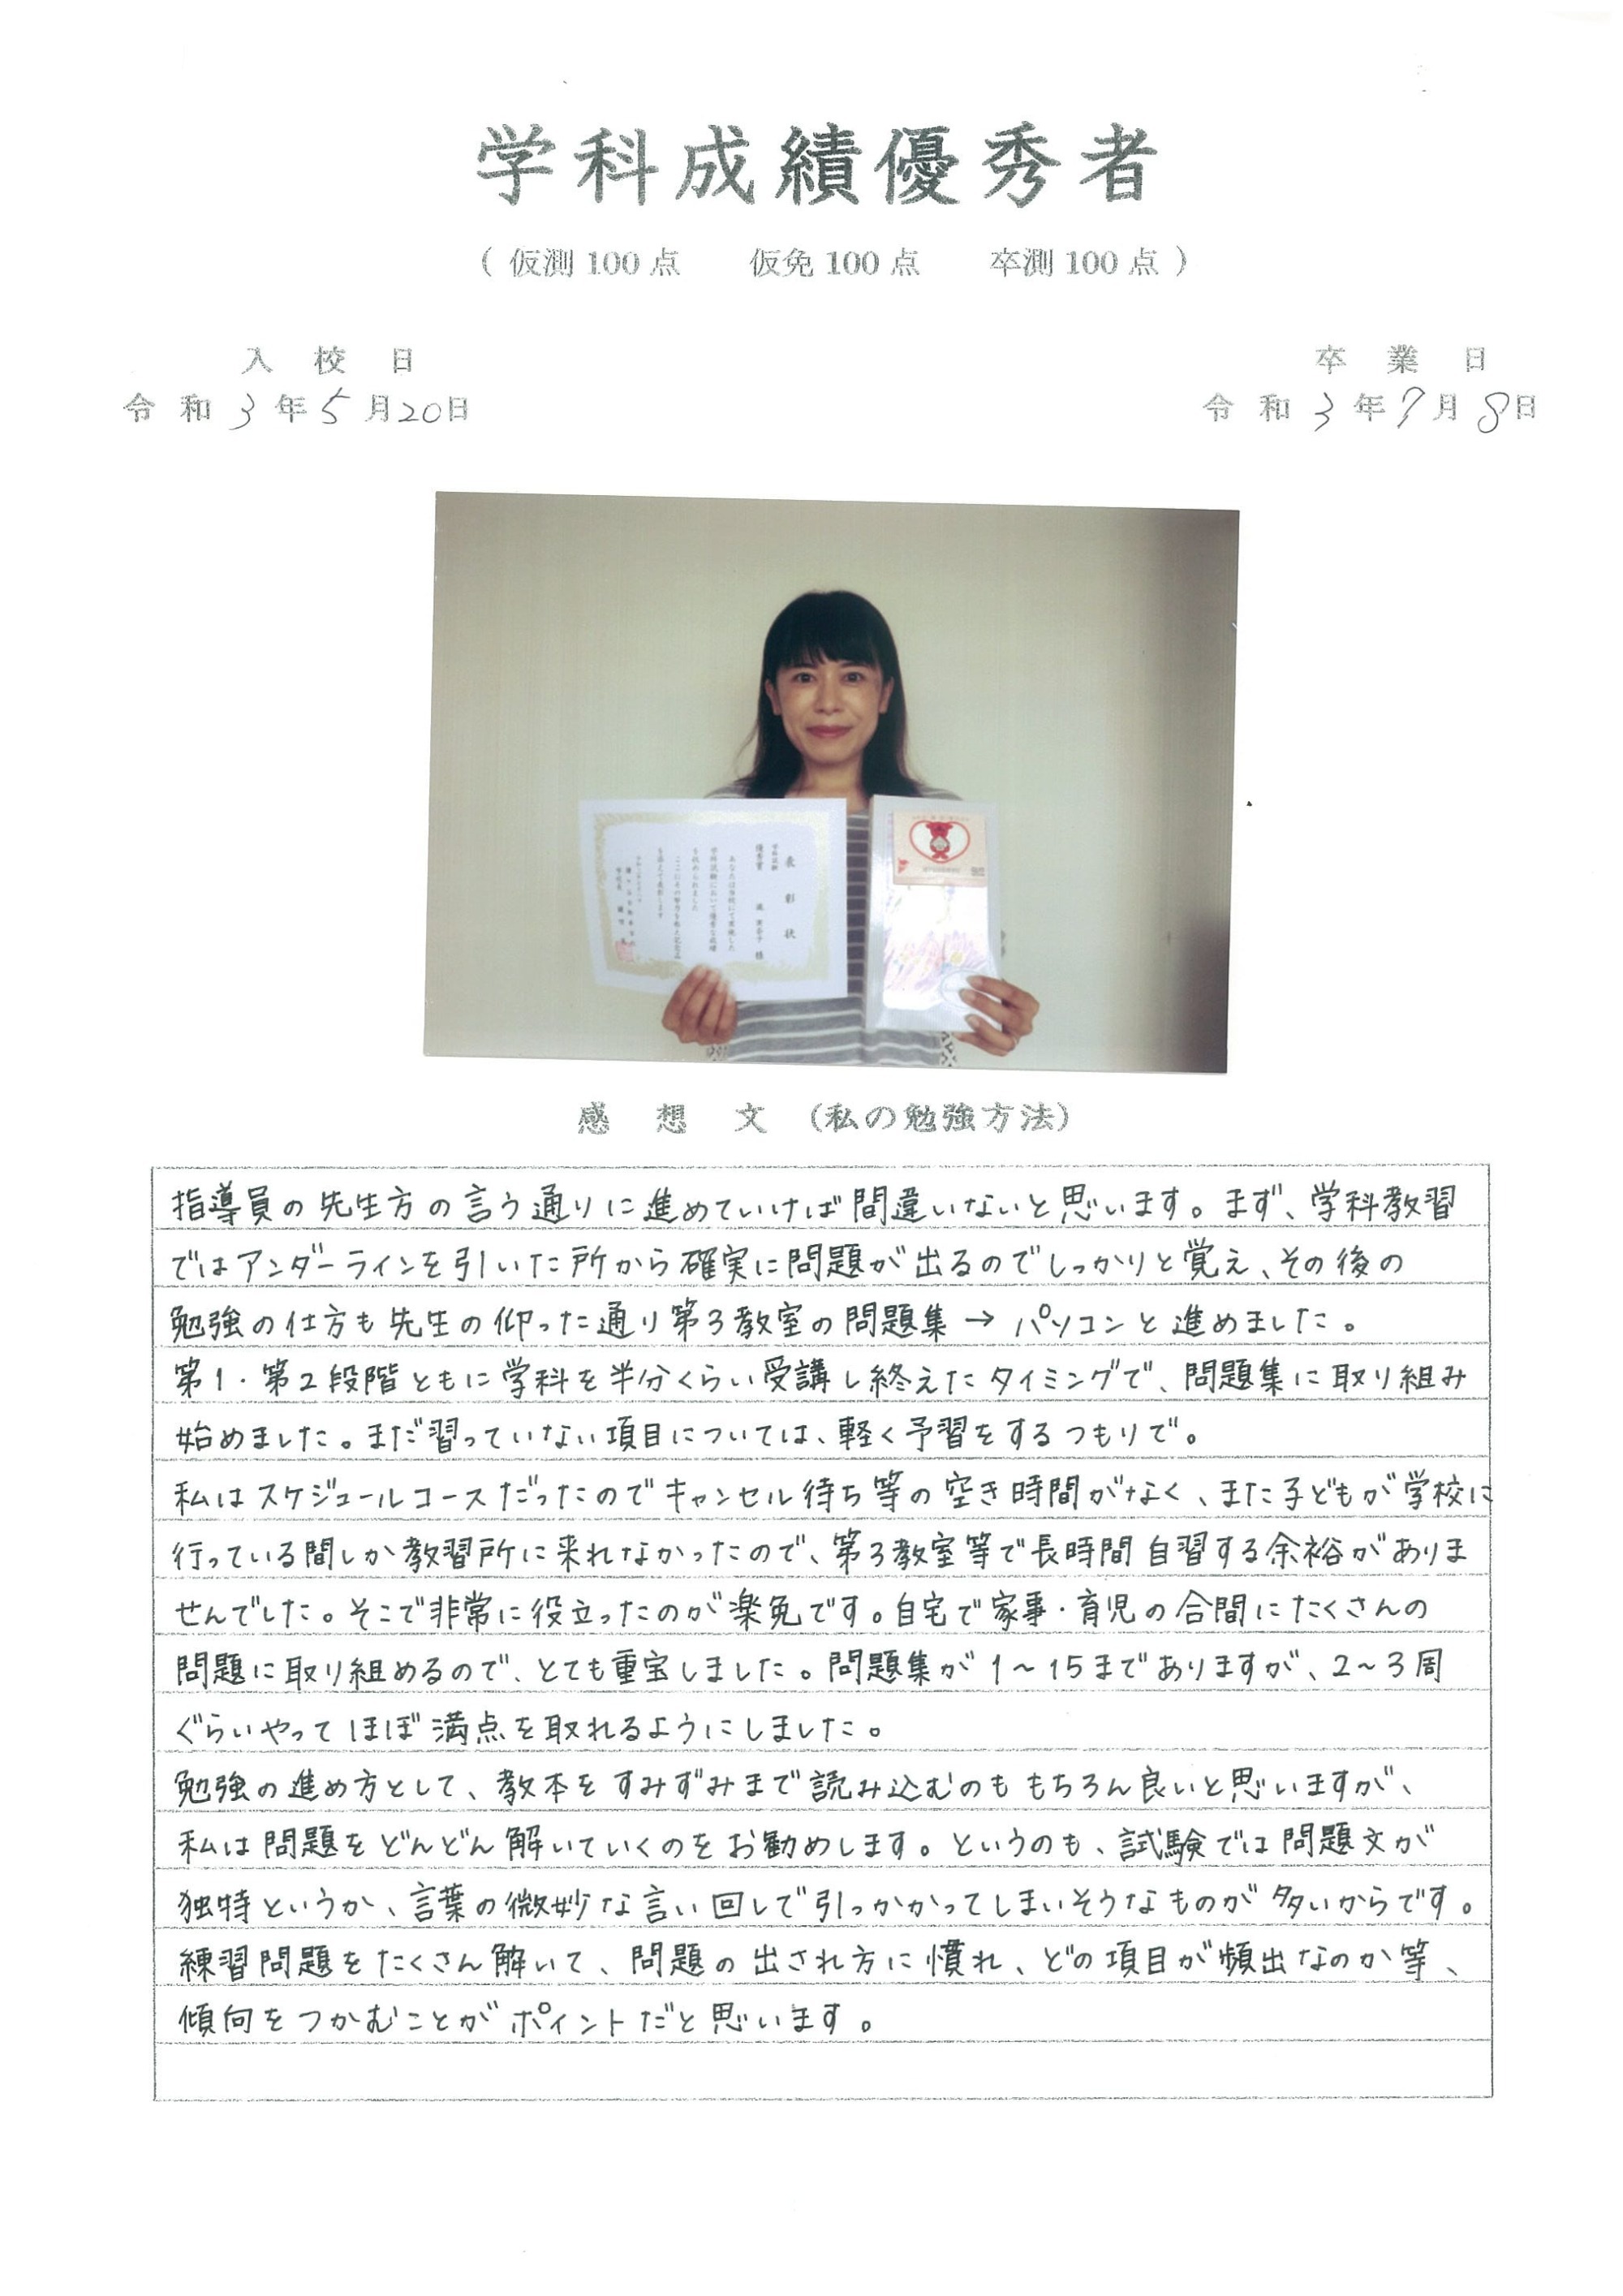 学科成績優秀者
(仮測100点 仮免100点 卒測100点)
入校日
令和3年5月20日
卒業日
令和3年7月8日
表彰状
学科試験
優秀賞
様
あなたは当校にて実施した
学科試験において優秀な成績
を収められました
ここにその努力を称え記念品
を添えて表彰します
感想文 (私の勉強方法)
指導員の先生方の言う通りに進めていけば間違いないと思います。まず、学科教習
ではアンダーラインを引いた所から確実に問題が出るのでしっかりと覚え、その後の
勉強の仕方も先生の仰った通り第3教室の問題集→パソコンと進めました。
第1・第2段階ともに学科を半分くらい受講し終えたタイミングで、問題集に取り組み
始めました。まだ習っていない項目については、軽く予習をするつもりで。
私はスケジュールコースだったのでキャンセル待ち等の空き時間がなく、また子どもが学校に
行っている間しか教習所に来れなかったので、第3教室等で長時間自習する余裕がありま
せんでした。そこで非常に役立ったのが楽免です。自宅で家事・育児の合間にたくさんの
問題に取り組めるので、とても重宝しました。問題集が1～15までありますが、2～3周
ぐらいやってほぼ満点を取れるようにしました。
勉強の進め方として、教本をすみずみまで読み込むのももちろん良いと思いますが、
私は問題をどんどん解いていくのをお勧めします。というのも、試験では問題文が
独特というか、言葉の微妙な言い回しで引っかかってしまいそうなものが多いからです。
練習問題をたくさん解いて、問題の出され方に慣れ、どの項目が頻出なのか等、
傾向をつかむことがポイントだと思います。